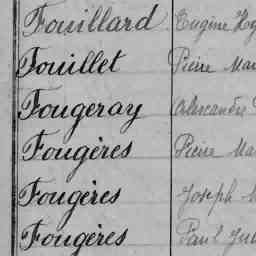 Fouillard Eugène
Fouillet Pierre
Fougeray Alexandre
Fougères Pierre
Fougères Joseph
Fougères Paul